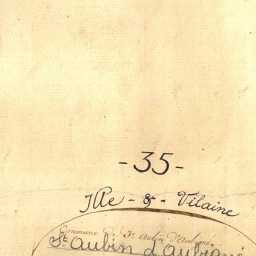 - 35 -
Ille - & - Vilaine
Commune de St Aubin d'Aubigné
St Aubin d'Aubigné